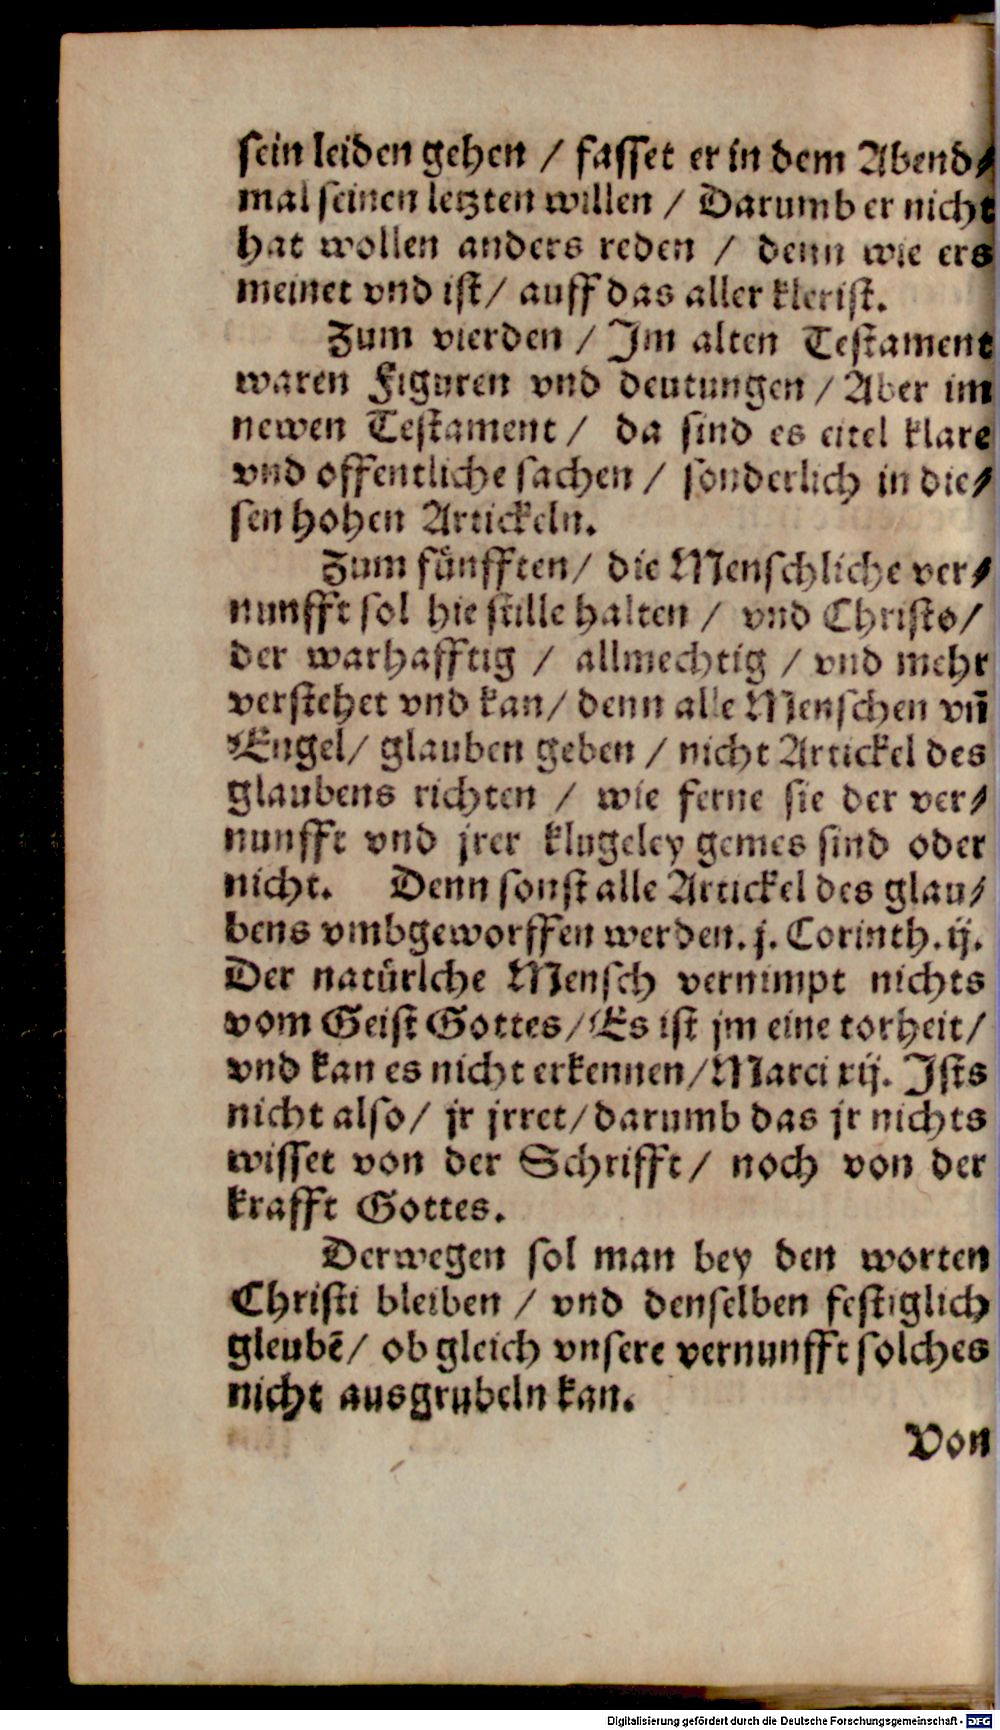 sein leiden gehen / fasset er in dem Abend⸗
mal seinen letzten willen / Darumb er nicht
hat wollen anders reden / denn wie ers
meinet vnd ist / auff das aller klerist.
Zum vierden / Im alten Testament
waren Figuren vnd deutungen / Aber im
newen Testament / da sind es eitel klare
vnd offentliche sachen / sonderlich in die⸗
sen hohen Artickeln.
Zum fünfften / die Menschliche ver⸗
nunfft sol hie stille halten / vnd Christo /
der warhafftig / allmechtig / vnd mehr
verstehet vnd kan / denn alle Menschen vñ
Engel / glauben geben / nicht Artickel des
glaubens richten / wie ferne sie der ver⸗
nunfft vnd jrer klugeley gemes sind oder
nicht. Denn sonst alle Artickel des glau⸗
bens vmbgeworffen werden. j. Corinth. ij.
Der natürlche Mensch vernimpt nichts
vom Geist Gottes / Es ist jm eine torheit /
vnd kan es nicht erkennen / Marci xij. Ists
nicht also / jr jrret / darumb das jr nichts
wisset von der Schrifft / noch von der
krafft Gottes.
Derwegen sol man bey den worten
Christi bleiben / vnd denselben festiglich
gleubẽ / ob gleich vnsere vernunfft solches
nicht ausgrubeln kan.
Von
Digitalisierung gefördert durch die Deutsche Forschungsgemeinschaft - DFG